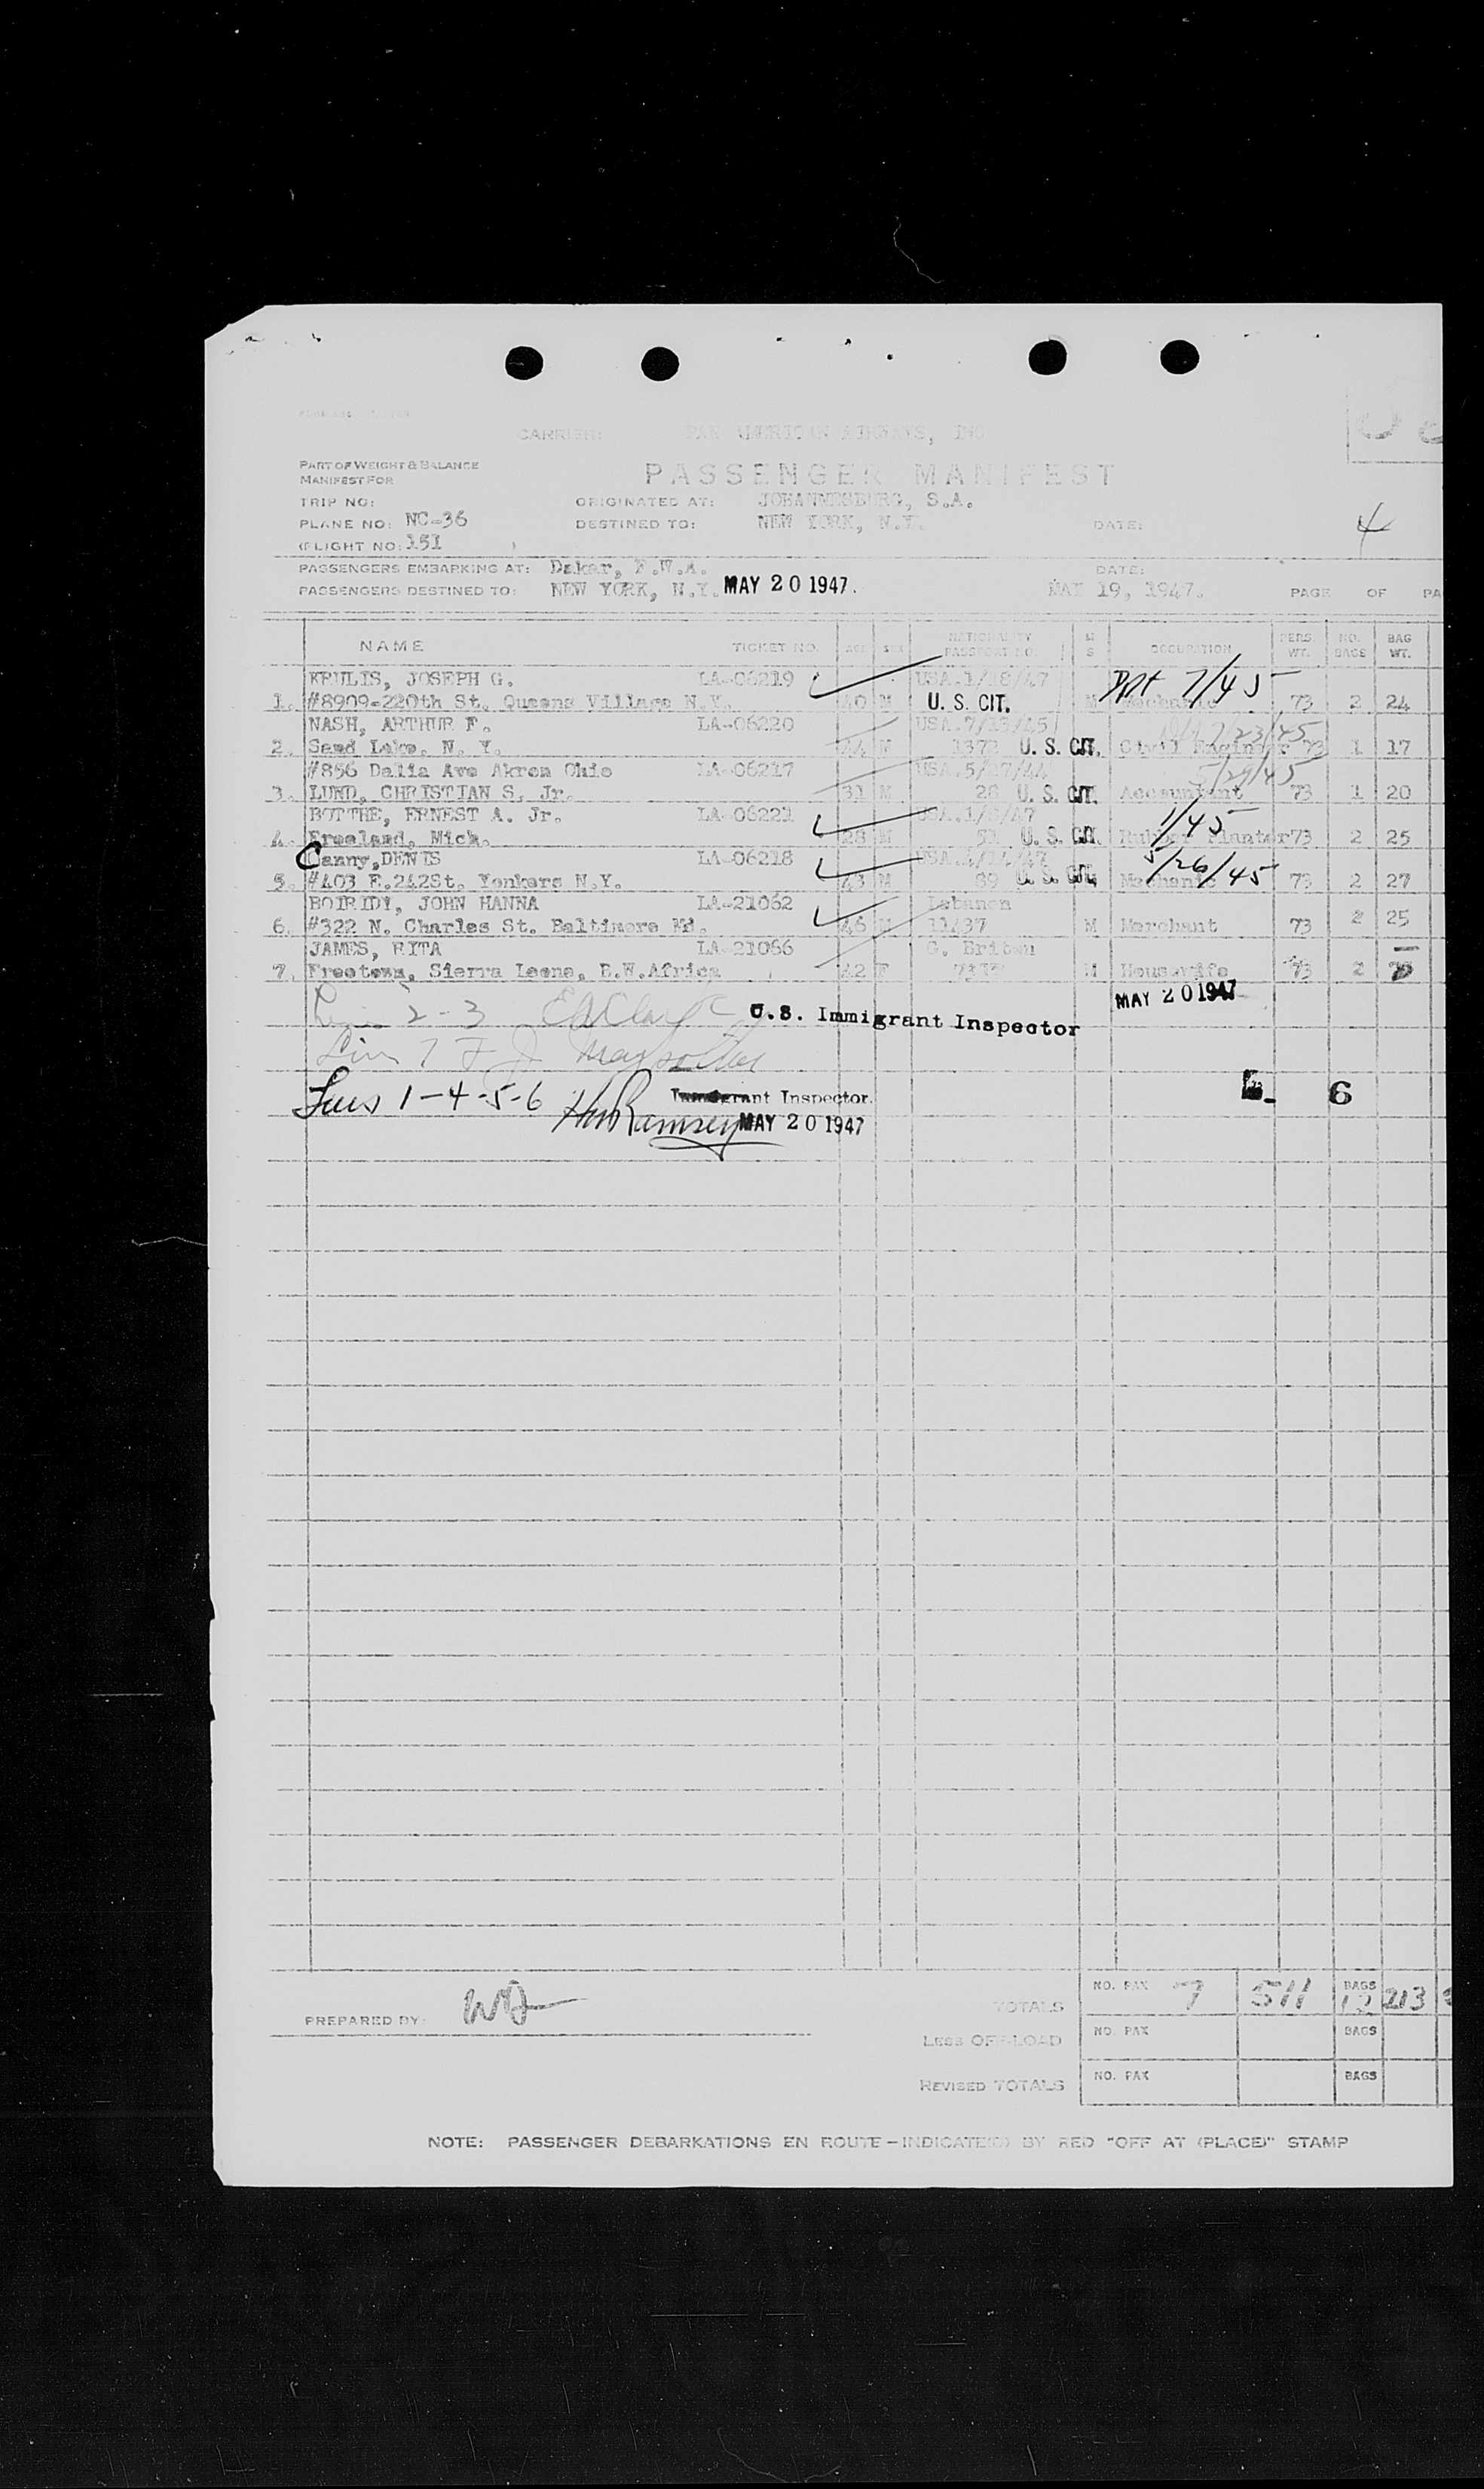 CARRIER: PAN AMERICAN AIRWAYS, INC
PART OF WEIGHT & BALANCE
MANIFEST FOR
PASSENGER MANIFEST
TRIP NO: ORIGINATED AT: JOHANNESBURG, S.A.
PLANE NO: NC-36 DESTINED TO: NEW YORK, N.Y. DATE: 4
(FLIGHT NO: 151 )
PASSENGERS EMBARKING AT: Dakar, F.W.A. DATE:
PASSENGERS DESTINED TO: NEW YORK, N.Y. MAY 20 1947. MAY 19, 1947. PAGE OF PA
NAME TICKET NO. AGE SEX NATIONALITY PASSPORT NO. M S OCCUPATION PERS. WT. NO. BAGS BAG WT.
KRULIS, JOSEPH G. LA-06219 USA. Ppt 7/45
1. #8909-220th St. Queens Village N.Y. 40 M U. S. CIT. M Mechanic 73 2 24
NASH, ARTHUR F. LA-06220 USA.7/13/45 7/23/45
2. Sand Lake, N. Y. 44 M U. S. CIT. Civil Engineer 73 1 17
#856 Dalia Ave Akron Ohio LA-06217 5/29/45
3. LUND, CHRISTIAN S. Jr. 31 M 28 U. S. CIT. Accountant 73 1 20
BOTTHE, ERNEST A. Jr. LA-06221 1/45
4. Freeland, Mich. 28 M 51 U. S. CIT. Rubber Planter 73 2 25
Canny, DENIS LA-06218 5/26/45
5. #403 E.242St. Yonkers N.Y. 43 M 89 U. S. CIT. Mechanic 73 2 27
BOIRIDY, JOHN HANNA LA-21062 Lebanon
6. #322 N. Charles St. Baltimore Md. 46 M 11437 M Merchant 73 2 25
JAMES, RITA LA-21066 G. Britan
7. Freetown, Sierra Leone, B.W.Africa 42 F M Housewife 73 2
MAY 20 1947
2-3 U.S. Immigrant Inspector
Line 7
Lines 1-4-5-6 Immigrant Inspector. 6
HW Ramsey MAY 20 1947
TOTALS NO. PAX 7 511 BAGS 12 213
PREPARED BY:
LESS OFF-LOAD NO. PAX BAGS
REVISED TOTALS NO. PAX BAGS
NOTE: PASSENGER DEBARKATIONS EN ROUTE-INDICATE(D) BY RED "OFF AT (PLACE)" STAMP